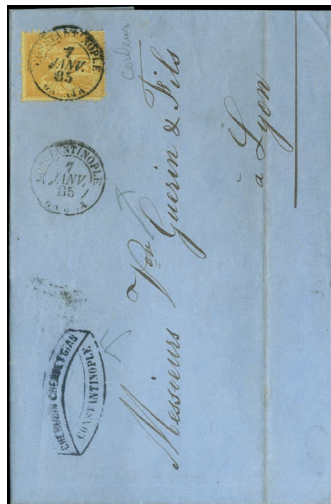 CONSTANTINOPLE
7
JANV.
85
CONSTANTINOPLE
7
JANV.
85
couleur
Messieurs Vve Guerin & Fils
à Lyon
CONSTANTINOPLE.